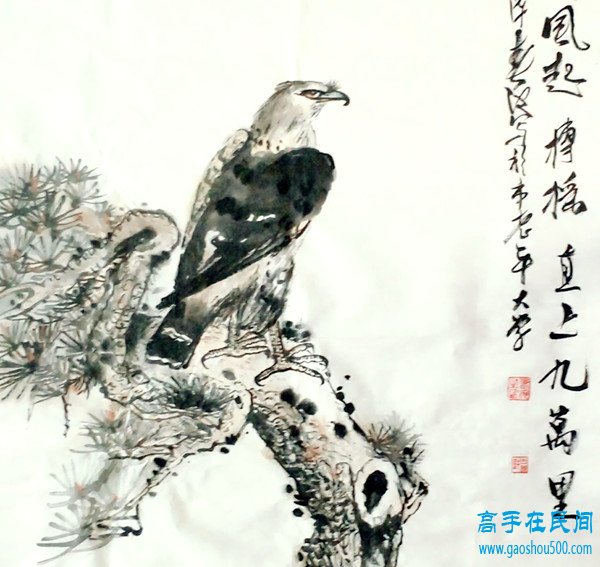 風起 摶搖 直上九萬里
寫於市老年大学
高手在民间
www.gaoshou500.com